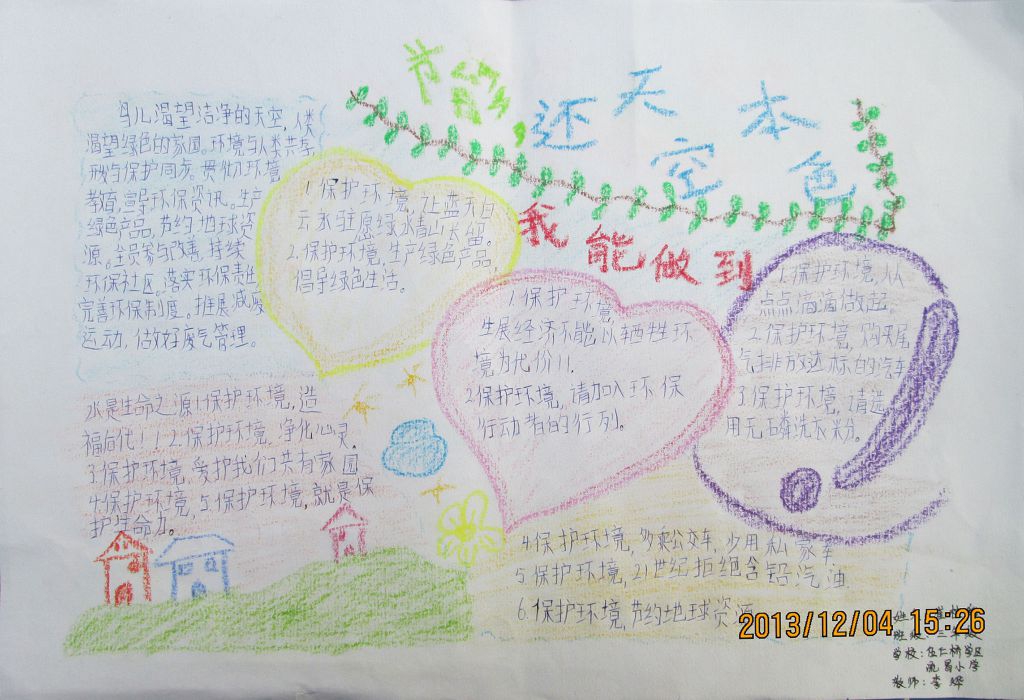 节能,还天空本色
我能做到
鸟儿渴望洁净的天空,人类
渴望绿色的家园。环境与人类共存
教育,宣导环保资讯。生产
绿色产品,节约地球资
源。全员参与改善,持续
环保社区,落实环保责任
完善环保制度。推展减废
运动,做好废气管理。
1.保护环境,让蓝天白
云永驻愿绿水青山长留。
2.保护环境,生产绿色产品,
倡导绿色生活。
1.保护环境,
发展经济不能以牺牲环
境为代价!!
2.保护环境,请加入环保
行动者的行列。
1.保护环境,从
点点滴滴做起。
2.保护环境,购买尾
气排放达标的汽车
3.保护环境,请选
用无磷洗衣粉。
水是生命之源1.保护环境,造
福后代!!2.保护环境,净化心灵。
3.保护环境,爱护我们共有家园
4.保护环境,5.保护环境,就是保
护生命力。
4.保护环境,多乘公交车,少用私家车
5.保护环境,21世纪拒绝含铅汽油
6.保护环境,节约地球资源
2013/12/04 15:26
班级:三年级
学校:伍仁桥学区
流昌小学
教师:李烨